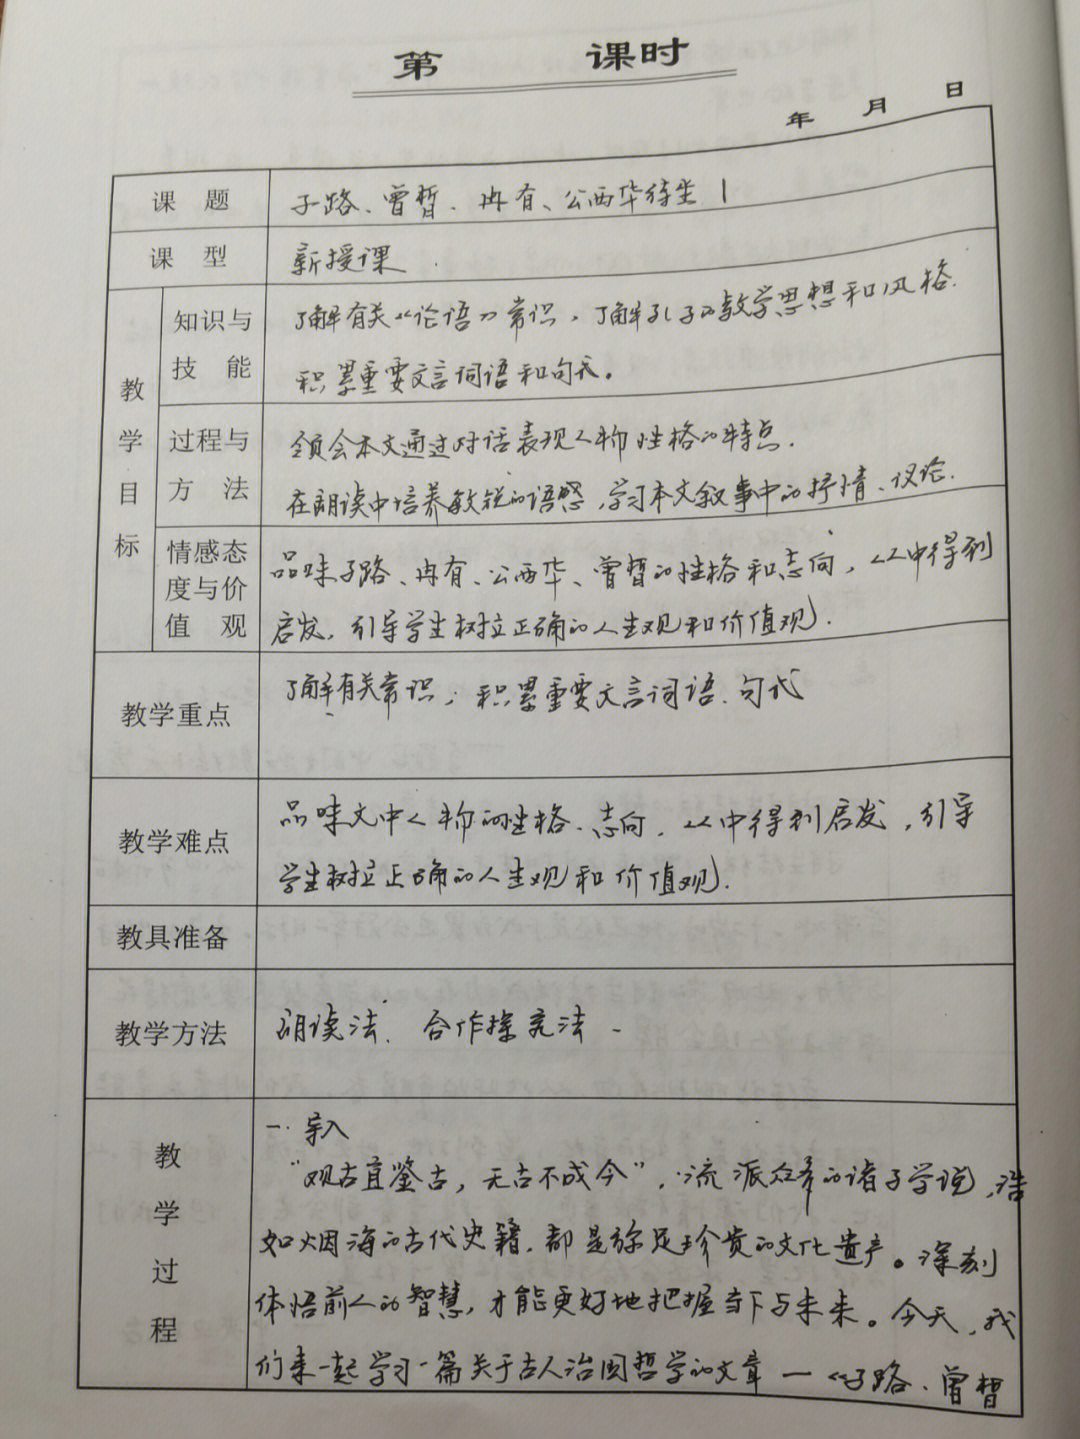 第 课时
年 月 日
课 题 子路、曾皙、冉有、公西华侍坐 1
课 型 新授课
教学目标
知识与技 能 了解有关《论语》常识，了解孔子的教学思想和风格.
积累重要文言词语和句式。
过程与方 法 领会本文通过对话表现人物性格的特点.
在朗读中培养敏锐的语感，学习本文叙事中的抒情、议论.
情感态度与价值 观 品味子路、冉有、公西华、曾皙的性格和志向，从中得到
启发，引导学生树立正确的人生观和价值观.
教学重点 了解有关常识；积累重要文言词语、句式
教学难点 品味文中人物的性格、志向，从中得到启发，引导
学生树立正确的人生观和价值观.
教具准备
教学方法 朗读法、合作探究法
教学过程
一. 导入
“观古宜鉴古，无古不成今”，流派众多的诸子学说，浩
如烟海的古代史籍，都是弥足珍贵的文化遗产。深刻
体悟前人的智慧，才能更好地把握当下与未来。今天，我
们来一起学习一篇关于古人治国哲学的文章 — 《子路、曾皙